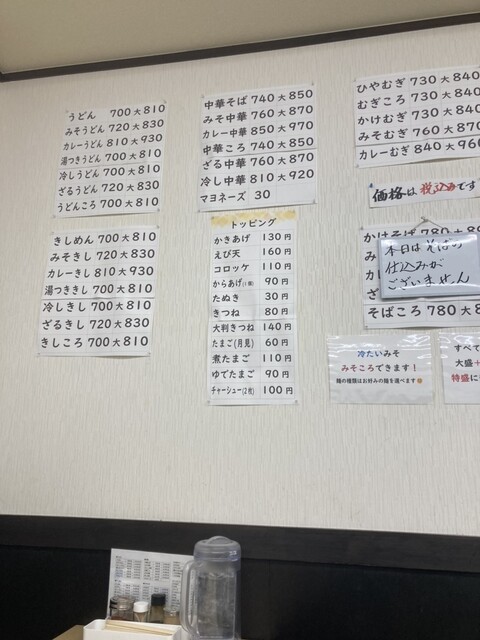 うどん 700 大 810
みそうどん 720 大 830
カレーうどん 810 大 930
湯つきうどん 700 大 810
冷しうどん 700 大 810
ざるうどん 720 大 830
うどんころ 700 大 810
きしめん 700 大 810
みそきし 720 大 830
カレーきし 810 大 930
湯つききし 700 大 810
冷しきし 700 大 810
ざるきし 720 大 830
きしころ 700 大 810
中華そば 740 大 850
みそ中華 760 大 870
カレー中華 850 大 970
中華ころ 740 大 850
ざる中華 760 大 870
冷し中華 810 大 920
マヨネーズ 30
トッピング
かきあげ 130 円
えび天 160 円
コロッケ 110 円
からあげ(1個) 90 円
たぬき 30 円
きつね 80 円
大判きつね 140 円
たまご(月見) 60 円
煮たまご 110 円
ゆでたまご 90 円
チャーシュー(2枚) 100 円
ひやむぎ 730 大 840
むぎころ 730 大 840
かけむぎ 730 大 840
みそむぎ 760 大 870
カレーむぎ 840 大 960
価格は税込みです
かけそば 780 大 89
み
カレ
ざ
本日はそばの
仕込みが
ございません
そばころ 780 大 8
冷たいみそ
みそころできます!
麺の種類はお好みの麺を選べます
すべて
大盛+
特盛に